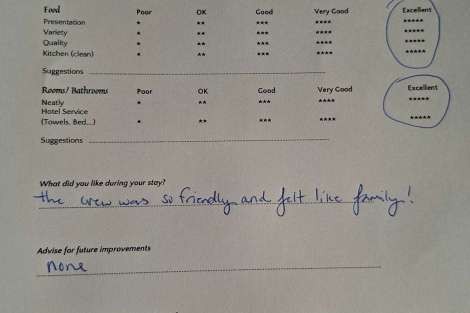 Food Poor OK Good Very Good Excellent
Presentation * ** *** **** *****
Variety * ** *** **** *****
Quality * ** *** **** *****
Kitchen (clean) * ** *** **** *****
Suggestions
Rooms/ Bathrooms Poor OK Good Very Good Excellent
Neatly * ** *** **** *****
Hotel Service
(Towels, Bed...) * ** *** **** *****
Suggestions
What did you like during your stay?
the crew was so friendly and felt like family!
Advise for future improvements
none